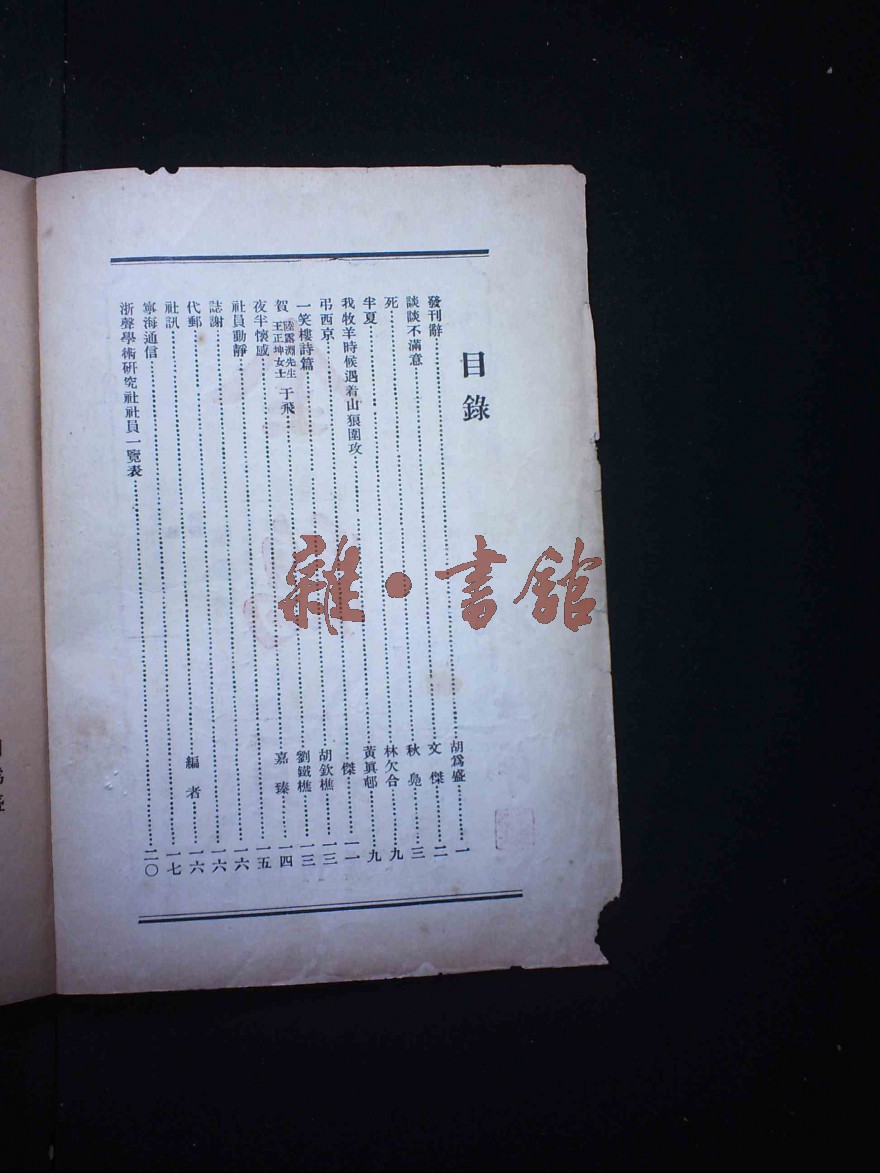 目錄
發刊辭……胡爲盛……一
談談不滿意……文傑……二
死……秋鳧……三
半夏……林欠合……九
我牧羊時候遇着山狼圍攻……黃眞邨……九
弔西京……傑……一一
一笑樓詩篇……胡欽樵……一三
賀陸露淵先生王正坤女士于飛……劉鐵樵……一三
夜半懷感……嘉臻……一四
社員動靜……一五
誌謝……一六
代郵……一六
社訊……編者……一六
寧海通信……一七
浙聲學術研究社社員一覽表……二〇
雜·書館